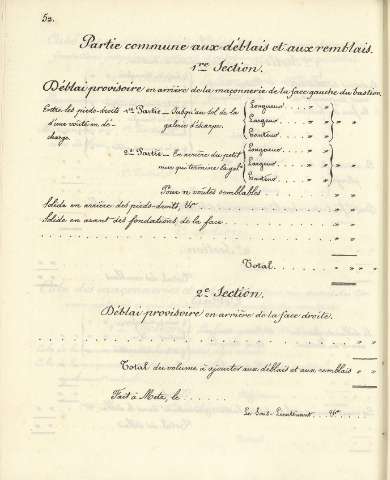 52.
Partie commune aux déblais et aux remblais.
1re Section.
Déblai provisoire en arrière de la maçonnerie de la face gauche du bastion.
Entre les pieds-droits 1re Partie _ Jusqu'au sol de la Longueur... " "
d'une voûte en dé- galerie d'écharpe. Largeur... " "
charge. Hauteur... " "
2e Partie _ En arrière du petit Longueur... " "
mur qui termine la galie Largeur... " "
Hauteur... " "
Pour n voûtes semblables......... " "
Solide en arrière des pieds-droits, &a......... " "
Solide en avant des fondations de la face......... " "
Total......... " "
2e Section.
Déblai provisoire en arrière de la face droite.
Total du volume à ajouter aux déblais et aux remblais " "
Fait à Metz, le.........
Le Sous-Lieutenant... &a...